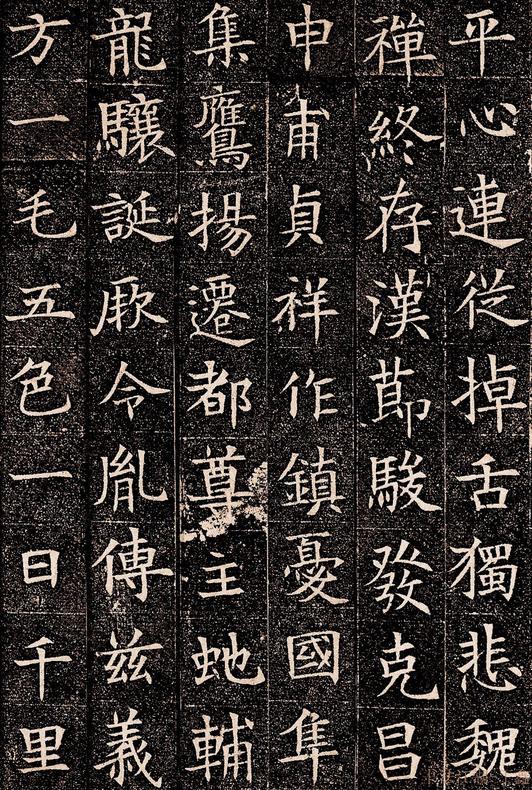 平心連從掉舌獨悲魏
禪終存漢莭駿發克昌
申甫貞祥作鎮憂國隼
集鷹揚遷都尊主虵輔
龍驤誕厥令胤傳茲義
方一毛五色一日千里